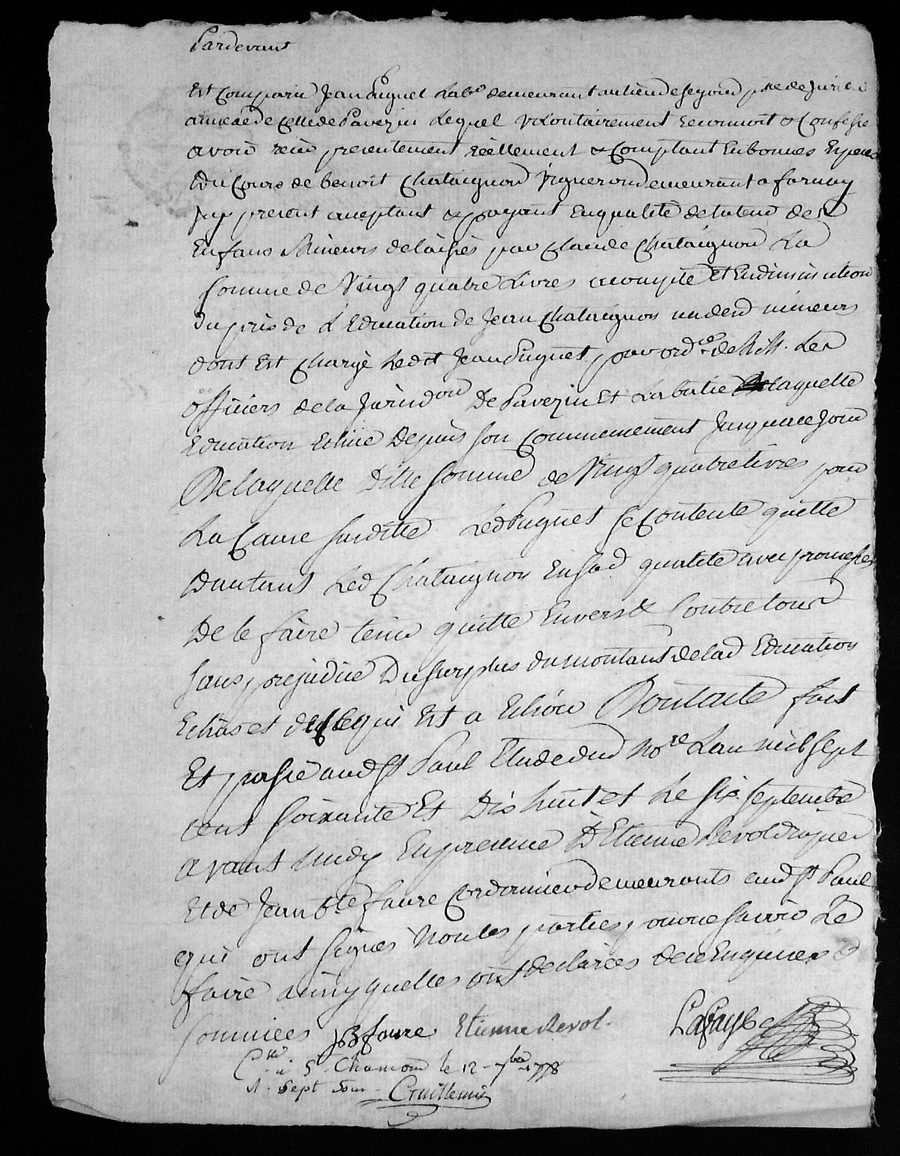 Pardevant
Est Comparu Jean Puguet Labr demeurant au lieu de psse de
annexe de Celle de Pavezin lequel volontairement Reconnoit & Confesse
avoir recu presentement réellement & Comptant En bonnes Especes
Du Cours de benoit Chataignon Vigneron demeurant a farnay
icy present aceptant & payant En qualité de tuteur des
Enfans Mineurs delaissés par Claude Chataignon La
Somme de Vingt quatre Livres acompte et En diminution
du prix de L'Education de Jean Chataignon un desd mineurs
dont Est Chargé Ledit Jean Puguet par ordce de Mrs. Les
officiers de la Jurisdon De Pavezin Et Labatie laquelle
Education Echue Depuis Son Commencement Jusqua ce Jour
De laquelle Ditte Somme de Vingt quatre livres pour
La Cause Susditte Led Puguet Se Contente quitte
Dautant Led Chataignon En sad qualité avec promesse
De le faire tenir quitte Envers & Contre tous
Sans prejudice Du Surplus du montant de lad Education
Echus et de Ce qui Est a Echoir Dont acte fait
Et passé aud St Paul Etude dud Nore Lan mil Sept
Cent Soixante Et Dix huit et Le Six Septembre
avant midy En presence D'Etienne Revol
Et de Jean Bte faure Cordonnier demeurants aud St Paul
qui ont Signés Non les parties pour ne Savoir Le
faire ainsy quelles ont declarées de ce Enquises &
Sommées JB faure Etienne Revol. Lafay
Cllé à St Chamond le 12 7bre 1778
R. Sept Sous Guillemin